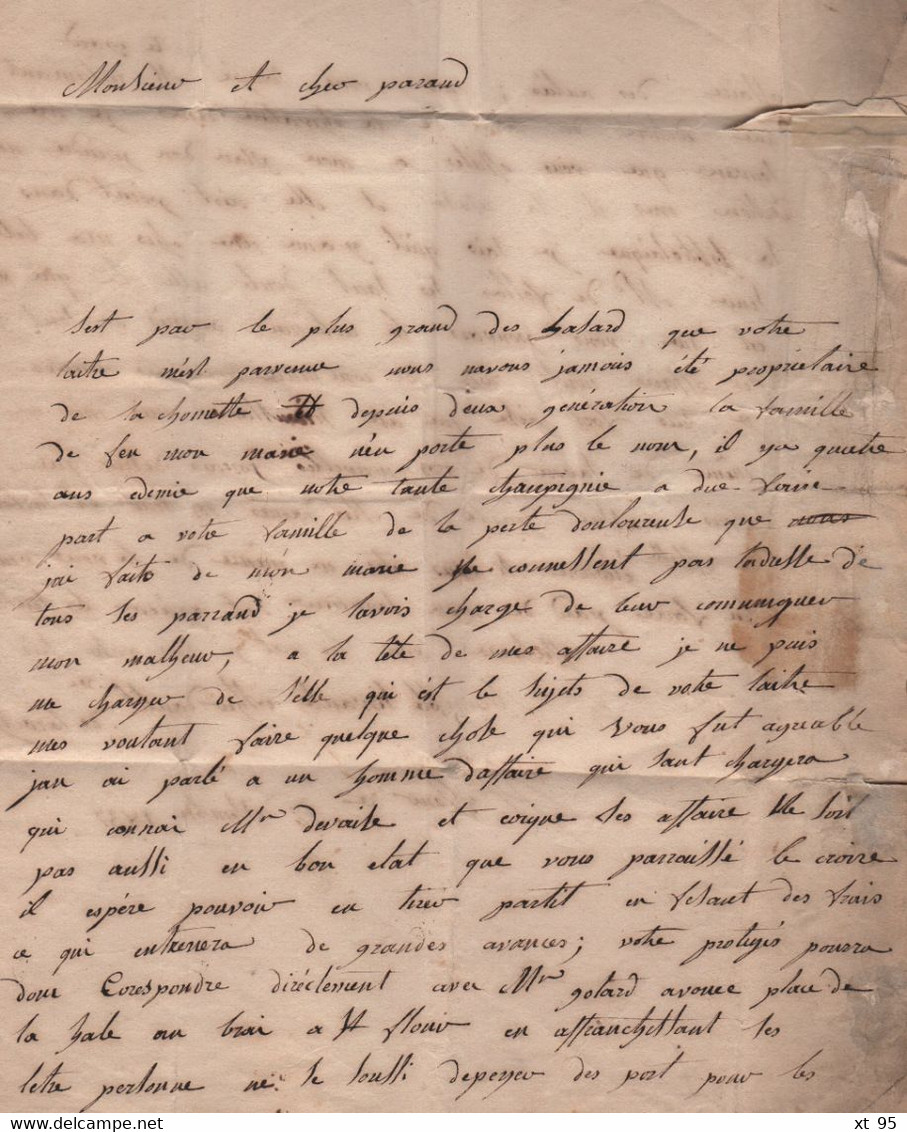 Monsieur et cher parand
sest par le plus grand des hasard que votre
laitre m'est parvenue nous navons jamais été propriétaire
de la chomette depuis deux génération la famille
de feu mon marie n'en porte plus le nom, il ya quatre
ans edemie que notre tante champignie a due faire
part a votre famille de la perte douloureuse que nous
jai faite de mon marie ne connessent pas ladresse de
tous ses parrand je lavois charge de leur comuniquer
mon malheur, a la tete de mes affaire je ne puis
me charger de selle qui est le sujets de votre laitre
mes voulant faire quelque chose qui vous fut agreable
jan ai parlé a un homme daffaire qui sant chargera
qui connai Mr devaise et coique ses affaire ne soit
pas aussi en bon etat que vous parraissé le croire
il espére pouvoir en tirer partit en fesant des frais
ce qui entrenera de grandes avances; votre protégés pourra
donc Corespondre diréctement avec Mr golard avouee place de
la hale au brai a St flour en affranchissant ses
letre personne ne se soussi depeyer des port pour les
xt 95